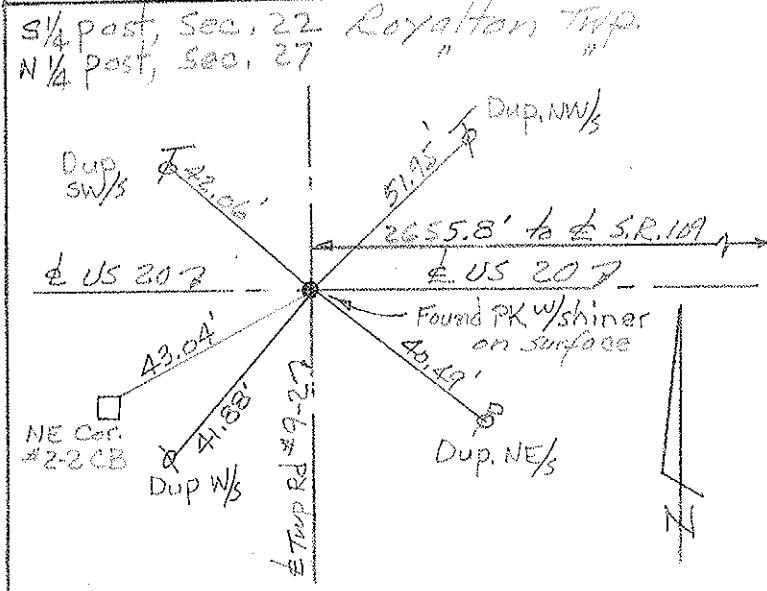 S 1/4 post, Sec. 22 Royalton Twp.
N 1/4 post, Sec. 27 " "
Dup. NW/s
Dup SW/s
42.06'
51.95'
2655.8' to ℄ S.R. 109
℄ US 20
℄ US 20
Found PK w/shiner
on surface
43.04'
40.49'
NE Cor.
#2-2 CB
41.88'
Dup W/s
Dup. NE/s
℄ Twp Rd #9-2
N